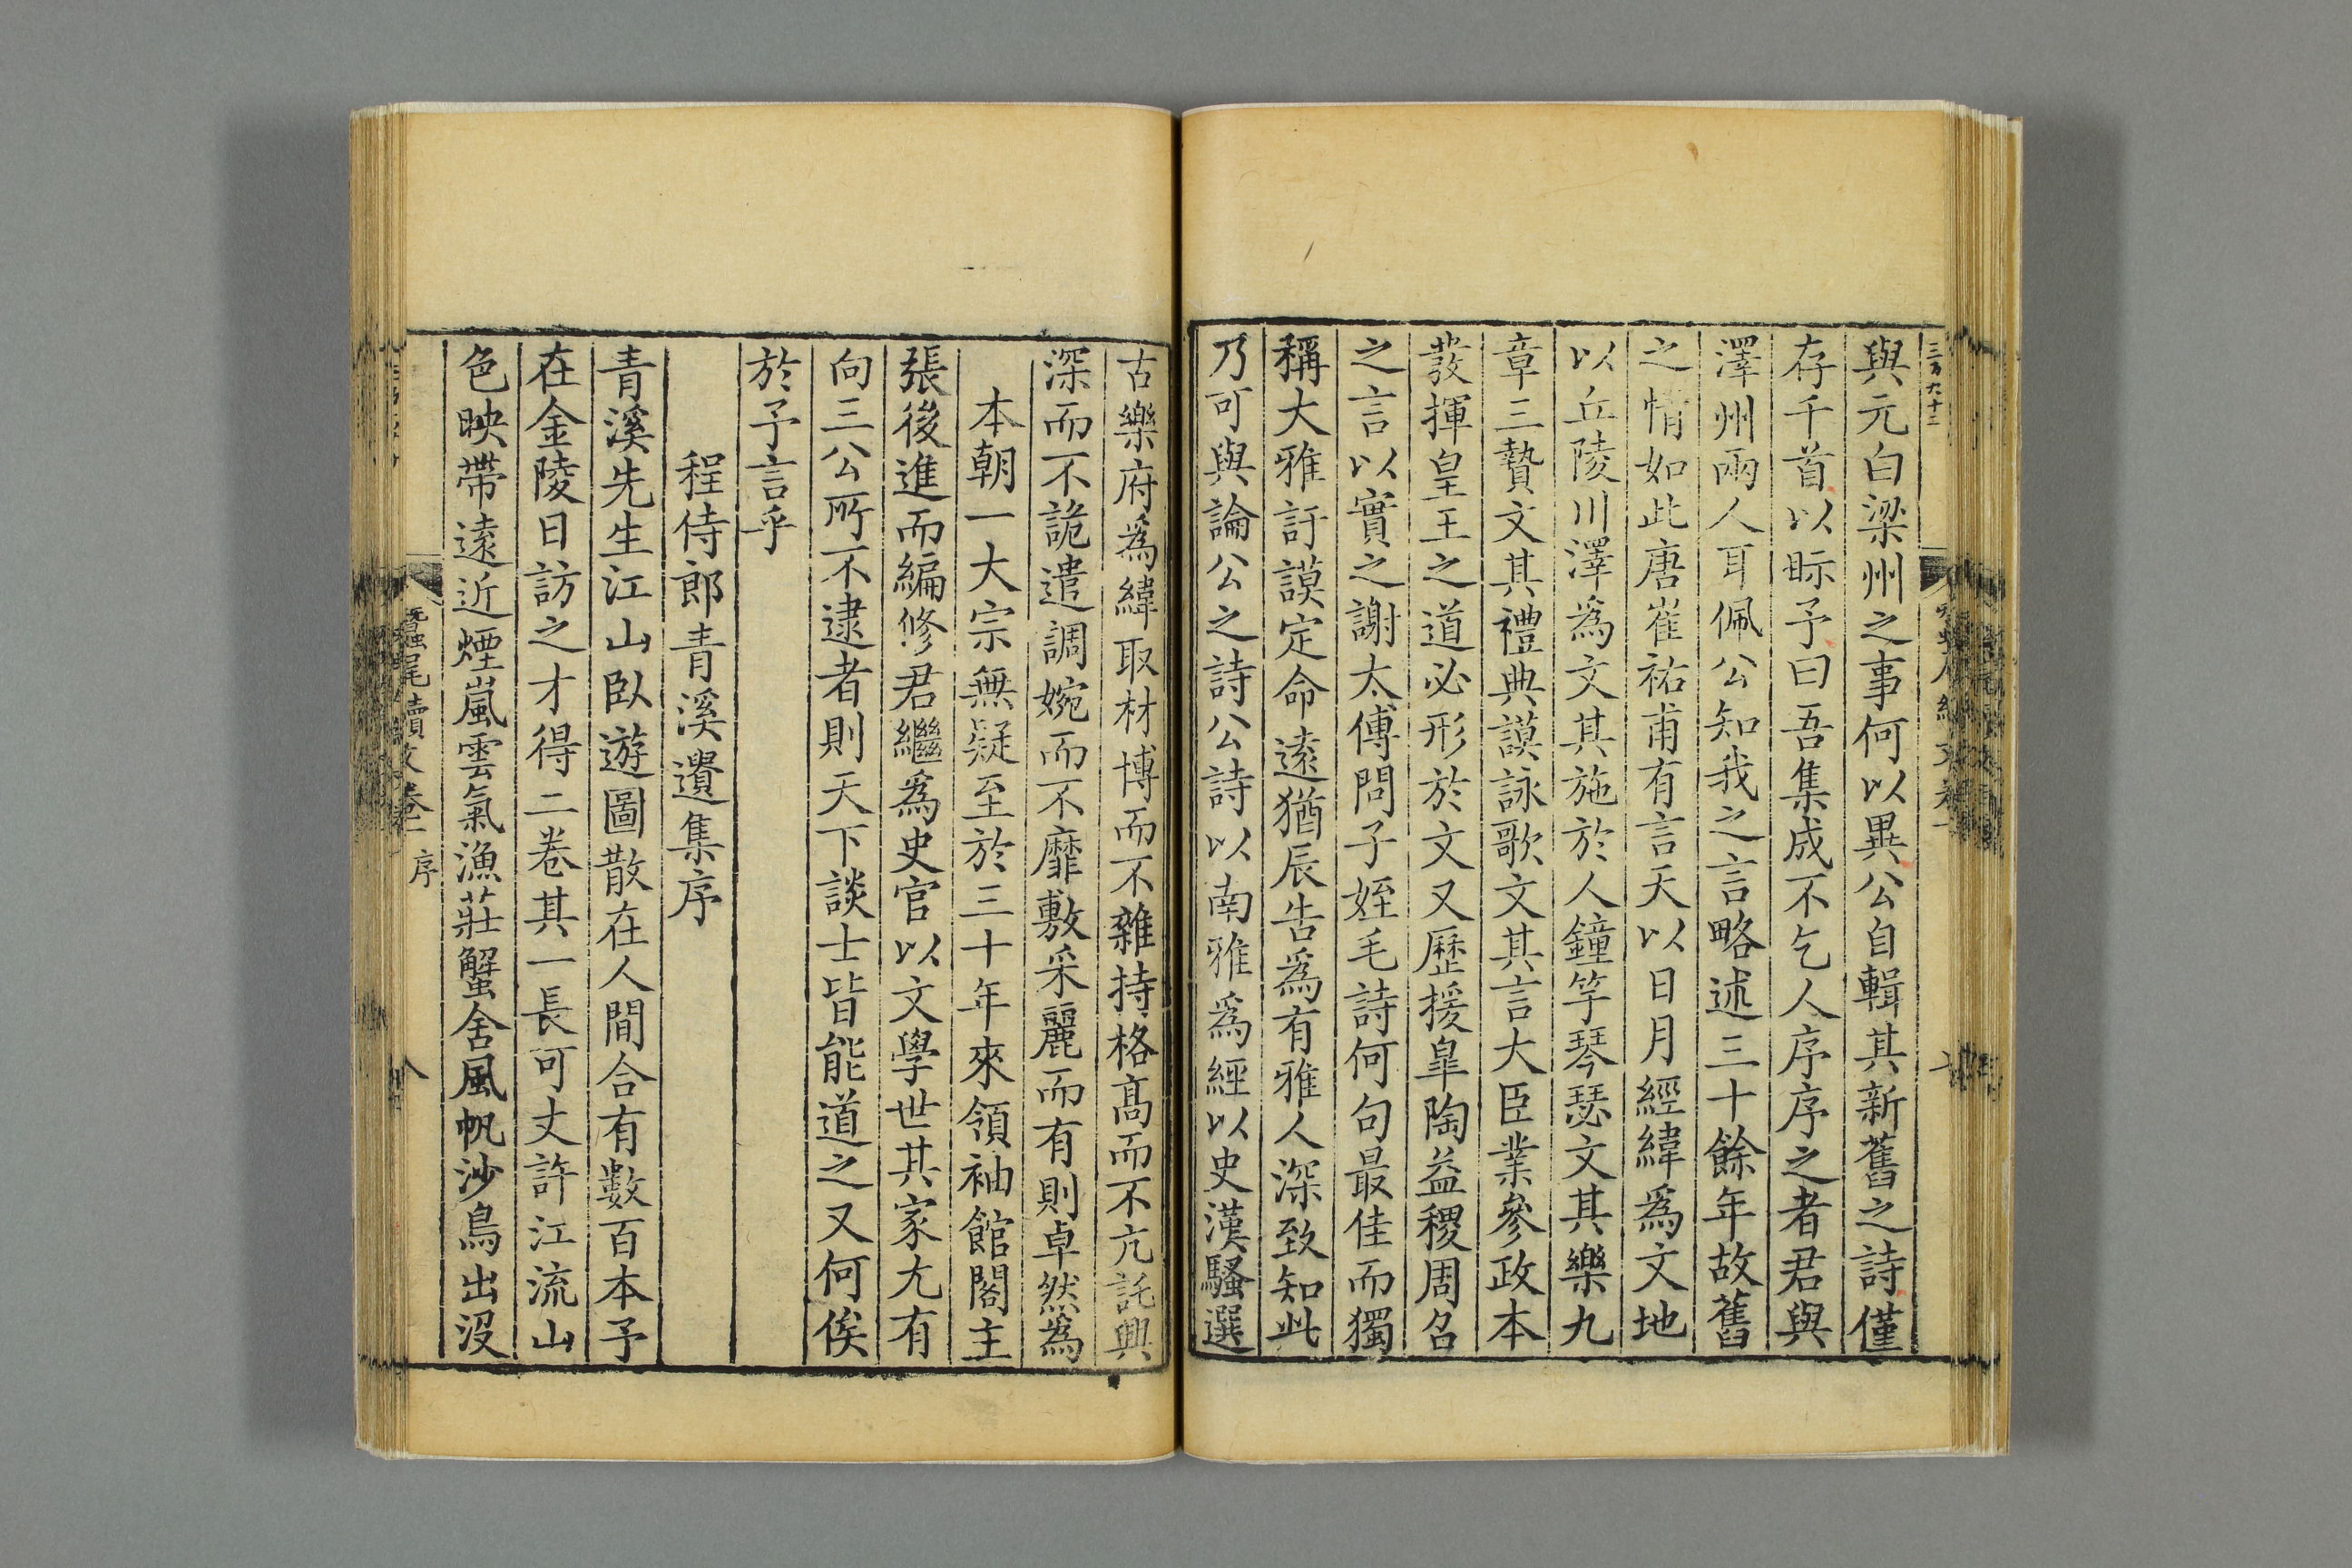 與元白梁州之事何以異公自輯其新舊之詩僅
存千首以眎予曰吾集成不乞人序序之者君與
澤州兩人耳佩公知我之言略述三十餘年故舊
之情如此唐崔祐甫有言天以日月經緯爲文地
以丘陵川澤爲文其施於人鐘竽琴瑟文其樂九
章三贄文其禮典謨詠歌文其言大臣業參政本
發揮皇王之道必形於文又歷援臯陶益稷周召
之言以實之謝太傅問子姪毛詩何句最佳而獨
稱大雅訏謨定命遠猶辰告爲有雅人深致知此
乃可與論公之詩公詩以南雅爲經以史漢騷選
古樂府爲緯取材博而不雜持格高而不亢託興
深而不詭遣調婉而不靡敷采麗而有則卓然爲
本朝一大宗無疑至於三十年來領袖館閣主
張後進而編修君繼爲史官以文學世其家尤有
向三公所不逮者則天下談士皆能道之又何俟
於予言乎
程侍郎青溪遺集序
青溪先生江山臥遊圖散在人間合有數百本予
在金陵日訪之才得二卷其一長可丈許江流山
色映帶遠近煙嵐雲氣漁莊蟹舍風帆沙鳥出沒
蠶尾續文卷一 序
八